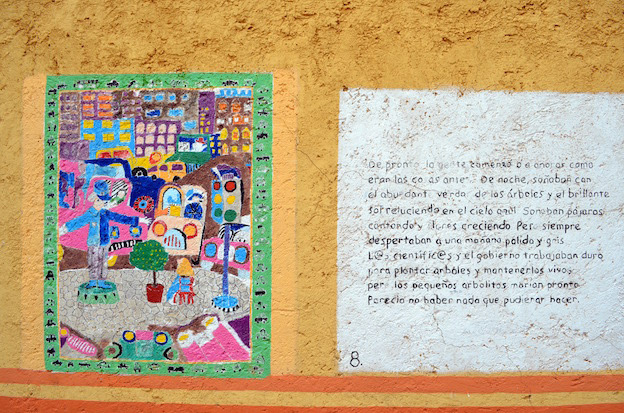 De pronto, la gente comenzó a añorar como
eran las cosas antes. De noche, soñaban con
el abundante verde de los árboles y el brillante
sol reluciendo en el cielo azul Soñaban pájaros
cantando y flores creciendo Pero siempre
despertaban a una mañana pálida y gris
L@s científic@s y el gobierno trabajaban duro
para plantar árboles y mantenerlos vivos
pero los pequeños arbolitos morían pronto
Parecía no haber nada que pudieran hacer.
8.